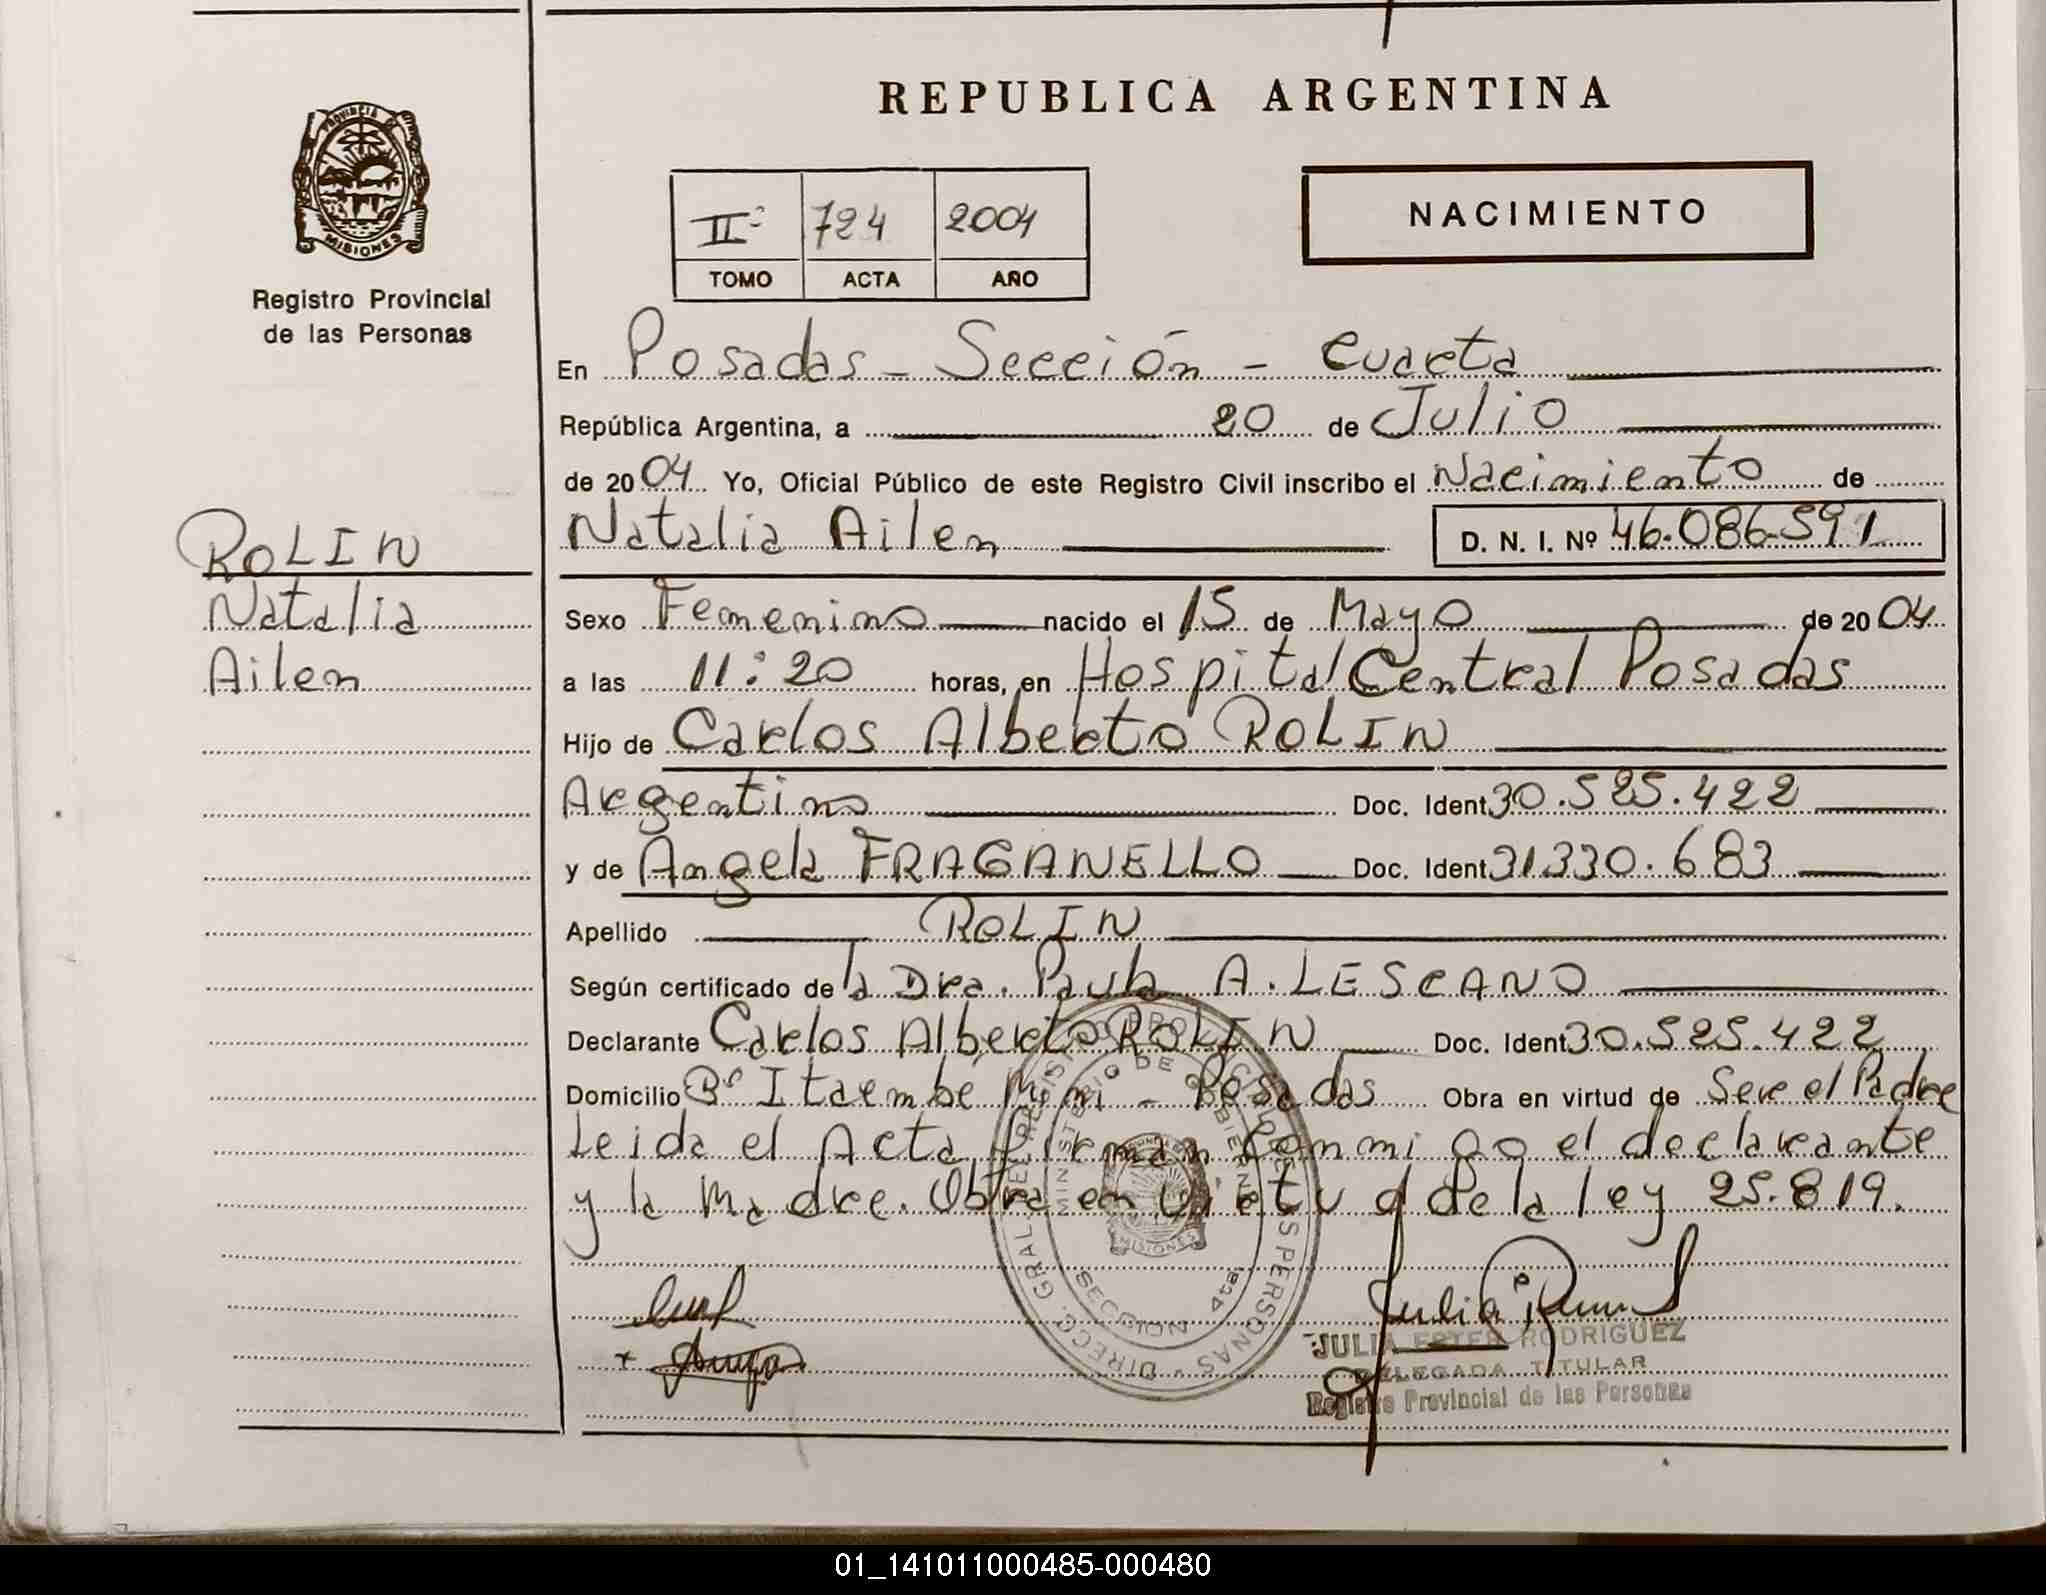 REPUBLICA ARGENTINA
PROVINCIA DE
MISIONES
Registro Provincial
de las Personas
IIº 724 2004
TOMO ACTA AÑO
NACIMIENTO
En Posadas - Sección - Cuarta
República Argentina, a 20 de Julio
de 2004 Yo, Oficial Público de este Registro Civil inscribo el Nacimiento de
Natalia Ailen D. N. I. Nº 46.086.591
ROLIN
Natalia
Ailen
Sexo Femenino nacido el 15 de Mayo de 2004
a las 11:20 horas, en Hospital Central Posadas
Hijo de Carlos Alberto ROLIN
Argentino Doc. Ident 30.525.422
y de Angela FRAGANELLO Doc. Ident 31330.683
Apellido ROLIN
Según certificado de la Dra. Paula A. LESCANO
Declarante Carlos Alberto ROLIN Doc. Ident 30.525.422
Domicilio Bº Itaembe Mini - Posadas Obra en virtud de Ser el Padre
Leida el Acta firman conmigo el declarante
y la Madre. Obra en virtud de la ley 25.819.
DIRECC. GRAL. DEL REGISTRO PROVINCIAL DE LAS PERSONAS
MINISTERIO DE GOBIERNO
MISIONES
SECCION 4ta.
JULIA ESTER RODRIGUEZ
DELEGADA TITULAR
Registro Provincial de las Personas
01_141011000485-000480